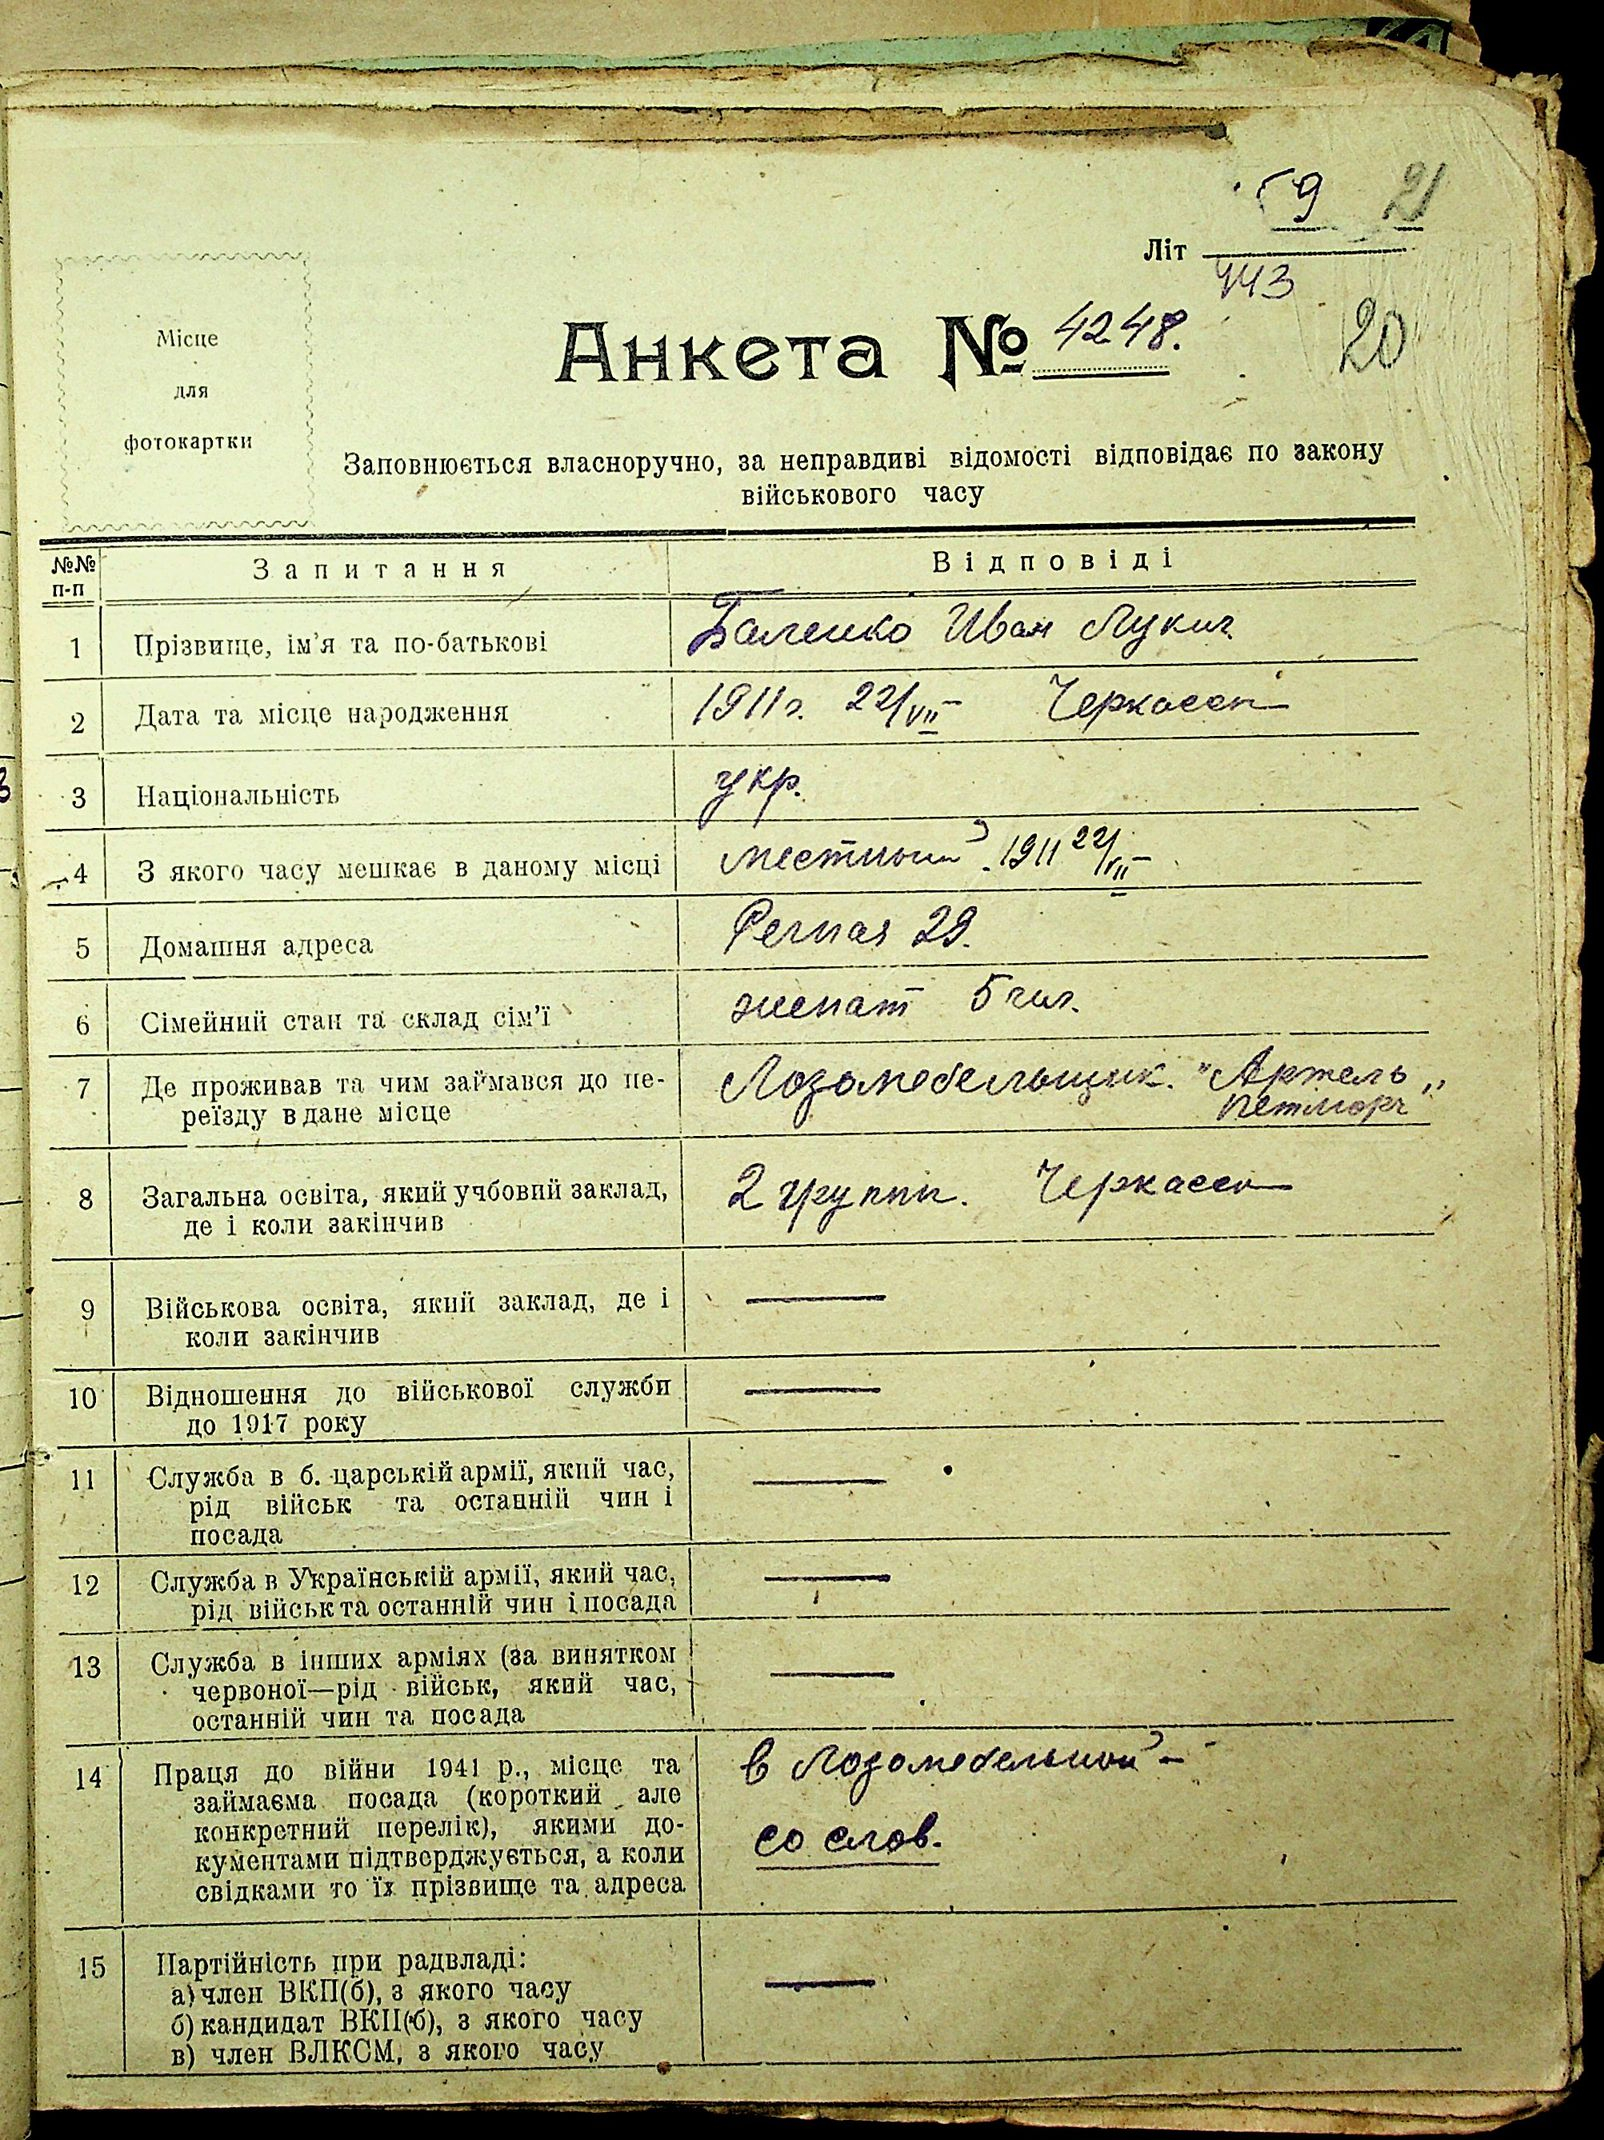 59 21
Літ
443
Анкета № 4248.
20
Місце
для
фотокартки
Заповнюється власноручно, за неправдиві відомості відповідає по закону
військового часу
№№ п-п Запитання Відповіді
1 Прізвище, ім'я та по-батькові Баленко Иван Лукич
2 Дата та місце народження 1911 г. 22/VII Черкассы
3 Національність укр.
4 З якого часу мешкає в даному місці местный 1911 22/VII
5 Домашня адреса Речная 29.
6 Сімейний стан та склад сім'ї женат 5 чел.
7 Де проживав та чим займався до пе- Лозомебельщик. "Артель
реїзду в дане місце
8 Загальна освіта, який учбовий заклад, 2 группы. Черкассы
де і коли закінчив
9 Військова освіта, який заклад, де і —
коли закінчив
10 Відношення до військової служби —
до 1917 року
11 Служба в б. царській армії, який час, —
рід військ та останній чин і
посада
12 Служба в Українській армії, який час, —
рід військ та останній чин і посада
13 Служба в інших арміях (за винятком —
червоної—рід військ, який час,
останній чин та посада
14 Праця до війни 1941 р., місце та в Лозомебельной -
займаєма посада (короткий але
конкретний перелік), якими до- со слов.
кументами підтверджується, а коли
свідками то їх прізвище та адреса
15 Партійність при радвладі: —
а) член ВКП(б), з якого часу
б) кандидат ВКП(б), з якого часу
в) член ВЛКСМ, з якого часу